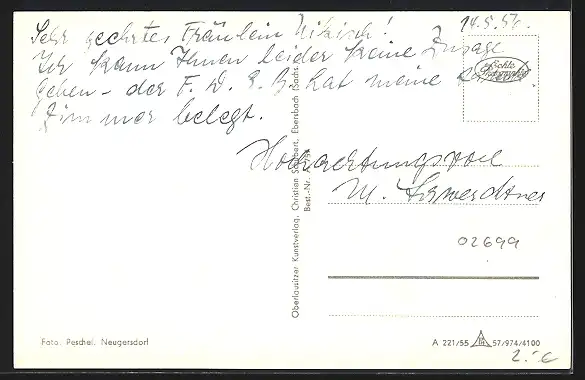 14.5.56.
Sehr geehrtes Fräulein Nikisch!
Ich kann Ihnen leider keine Zusage
geben – der F. D. G. B. hat meine
Zimmer belegt.
Hochachtungsvoll
M.
Echte
02699
Oberlausitzer Kunstverlag, Christian Schubert, Ebersbach (Sachs.
Best.-Nr.
Foto. Peschel, Neugersdorf
A 221/55 57/974/4100
2.-€